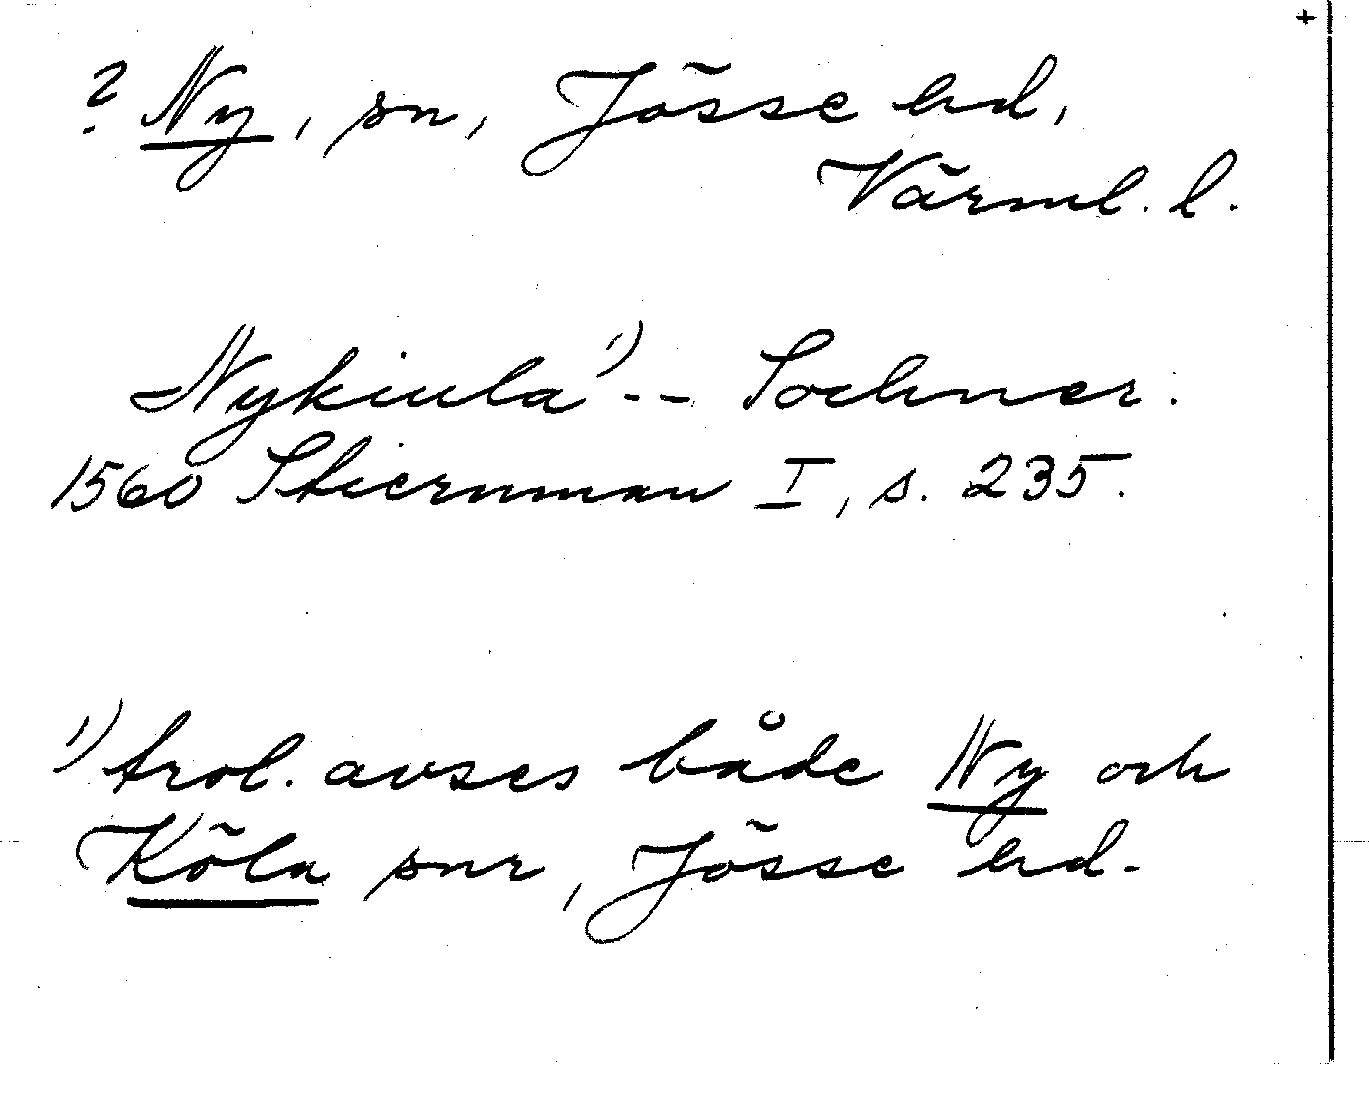 +
? Ny, sn, Jösse hd,
Värml. l.
Nykiula ¹) -- Sochner.
1560 Stiernman I, s. 235.
¹) trol. avses både Ny och
Köla snr, Jösse hd.